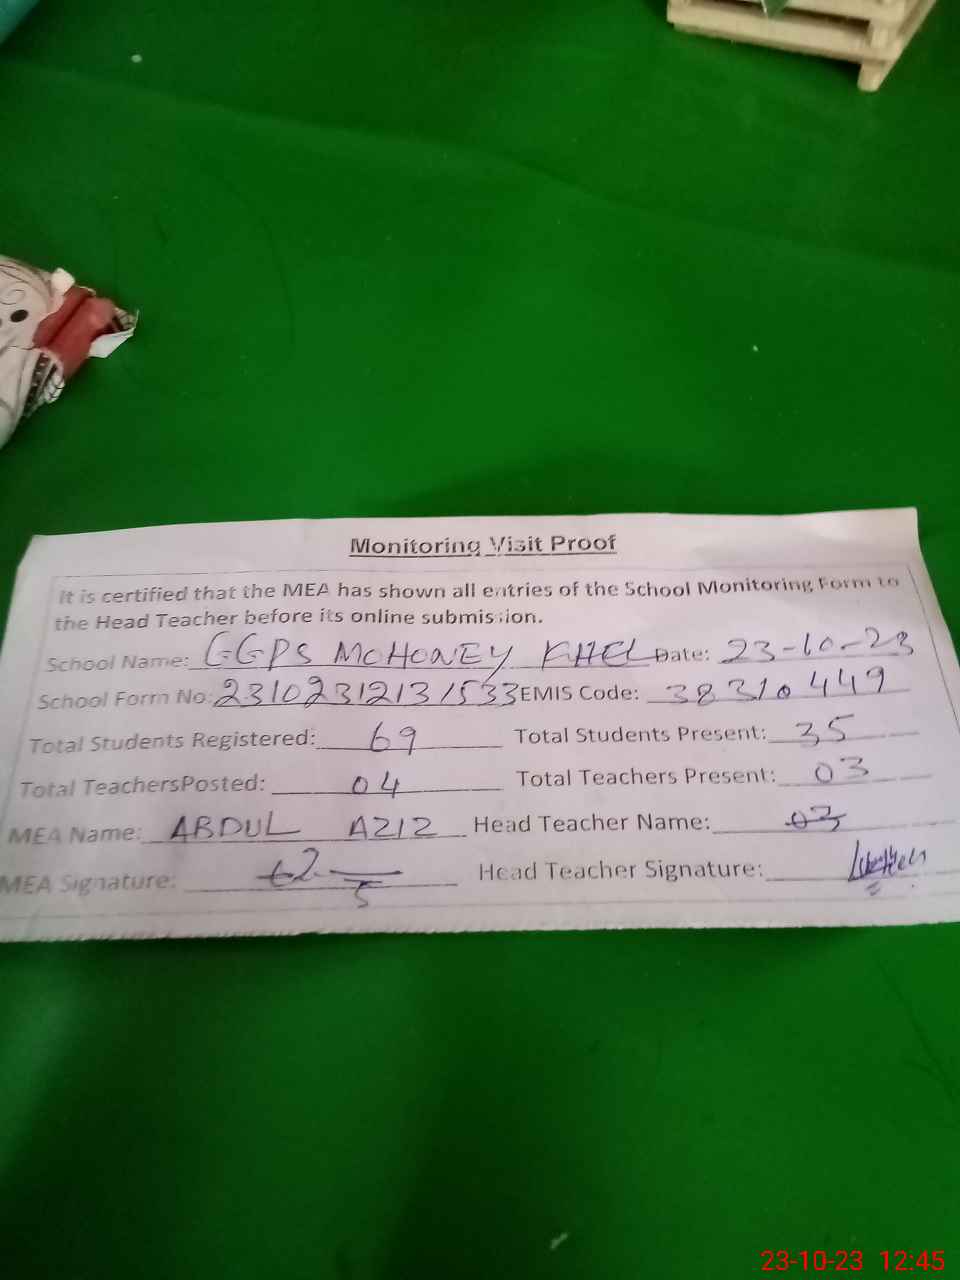 Monitoring Visit Proof
It is certified that the MEA has shown all entries of the School Monitoring Form to
the Head Teacher before its online submission.
School Name: GGPS MOHONEY KHEL Date: 23-10-23
School Form No: 23102312131533 EMIS Code: 38310449
Total Students Registered: 69 Total Students Present: 35
Total TeachersPosted: 04 Total Teachers Present: 03
MEA Name: ABDUL AZIZ Head Teacher Name: 03
MEA Signature: Head Teacher Signature:
23-10-23 12:45